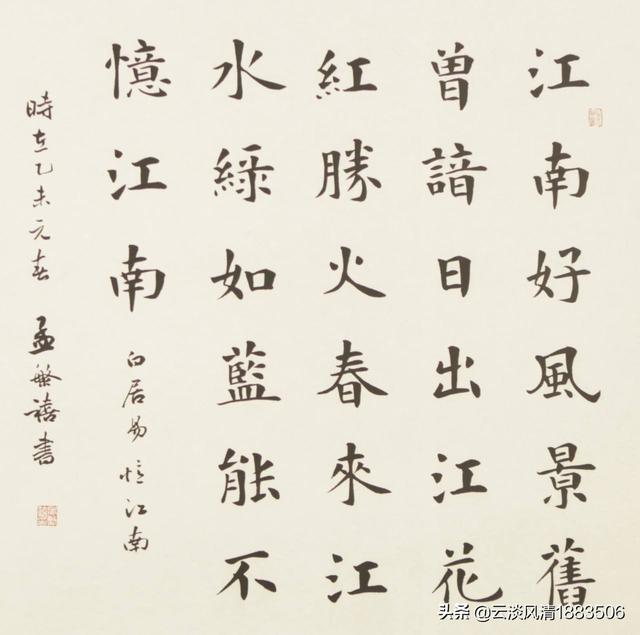 江南好風景舊
曾諳日出江花
紅勝火春來江
水綠如藍能不
憶江南
白居易憶江南
時在乙未元春 孟繁禧書
头条 @云淡风清1883506